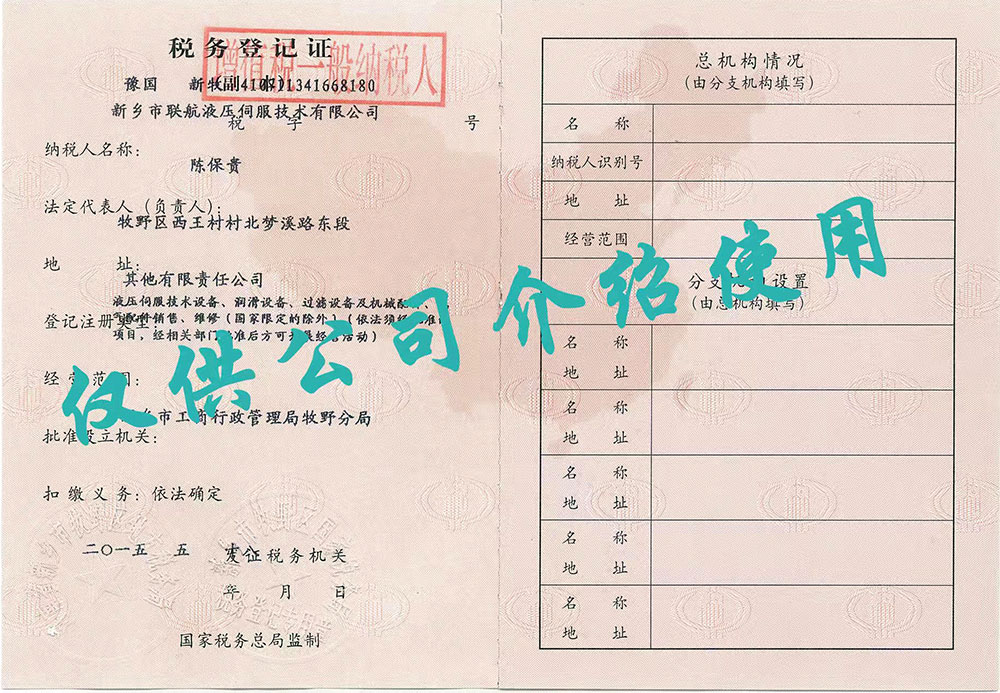 税务登记证
增值税一般纳税人
豫国 新牧 副 本 410711341668180
新乡市联航液压伺服技术有限公司
税 字 号
纳税人名称：
陈保贵
法定代表人（负责人）：
牧野区西王村村北梦溪路东段
地 址：
其他有限责任公司
液压伺服技术设备、润滑设备、过滤设备及机械配
配件销售、维修（国家限定的除外）（依法须经
登记注册类型：
项目，经相关部门 准后方可 经 活动）
经营范围：
乡市工商行政管理局牧野分局
批准设立机关：
扣缴义务：依法确定
二〇一五 五 十八
发证税务机关
年 月 日
国家税务总局监制
总机构情况
（由分支机构填写）
名 称
纳税人识别号
地 址
经营范围
分支机构设置
（由总机构填写）
名 称
地 址
名 称
地 址
名 称
地 址
名 称
地 址
名 称
地 址
仅供公司介绍使用